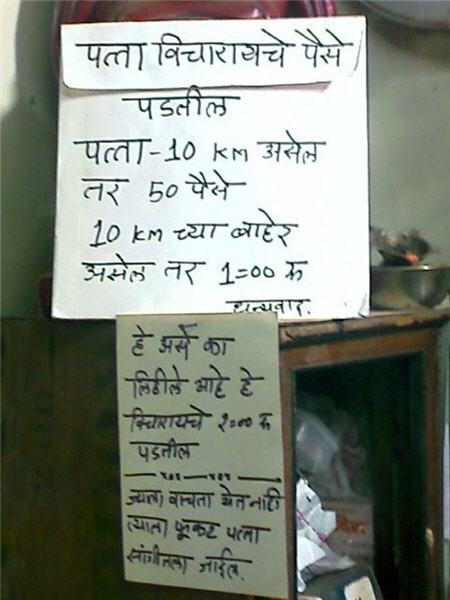 पत्ता विचारायचे पैसे
पडतील
पत्ता - 10 KM असेल
तर 50 पैसे
10 KM च्या बाहेर
असेल तर 1=00 रु
धन्यवाद.
हे असे का
लिहीले आहे हे
विचारायचे २=०० रु
पडतील
ज्याला वाचता येत नाही
त्याला फूकट पत्ता
सांगीतला जाईल.